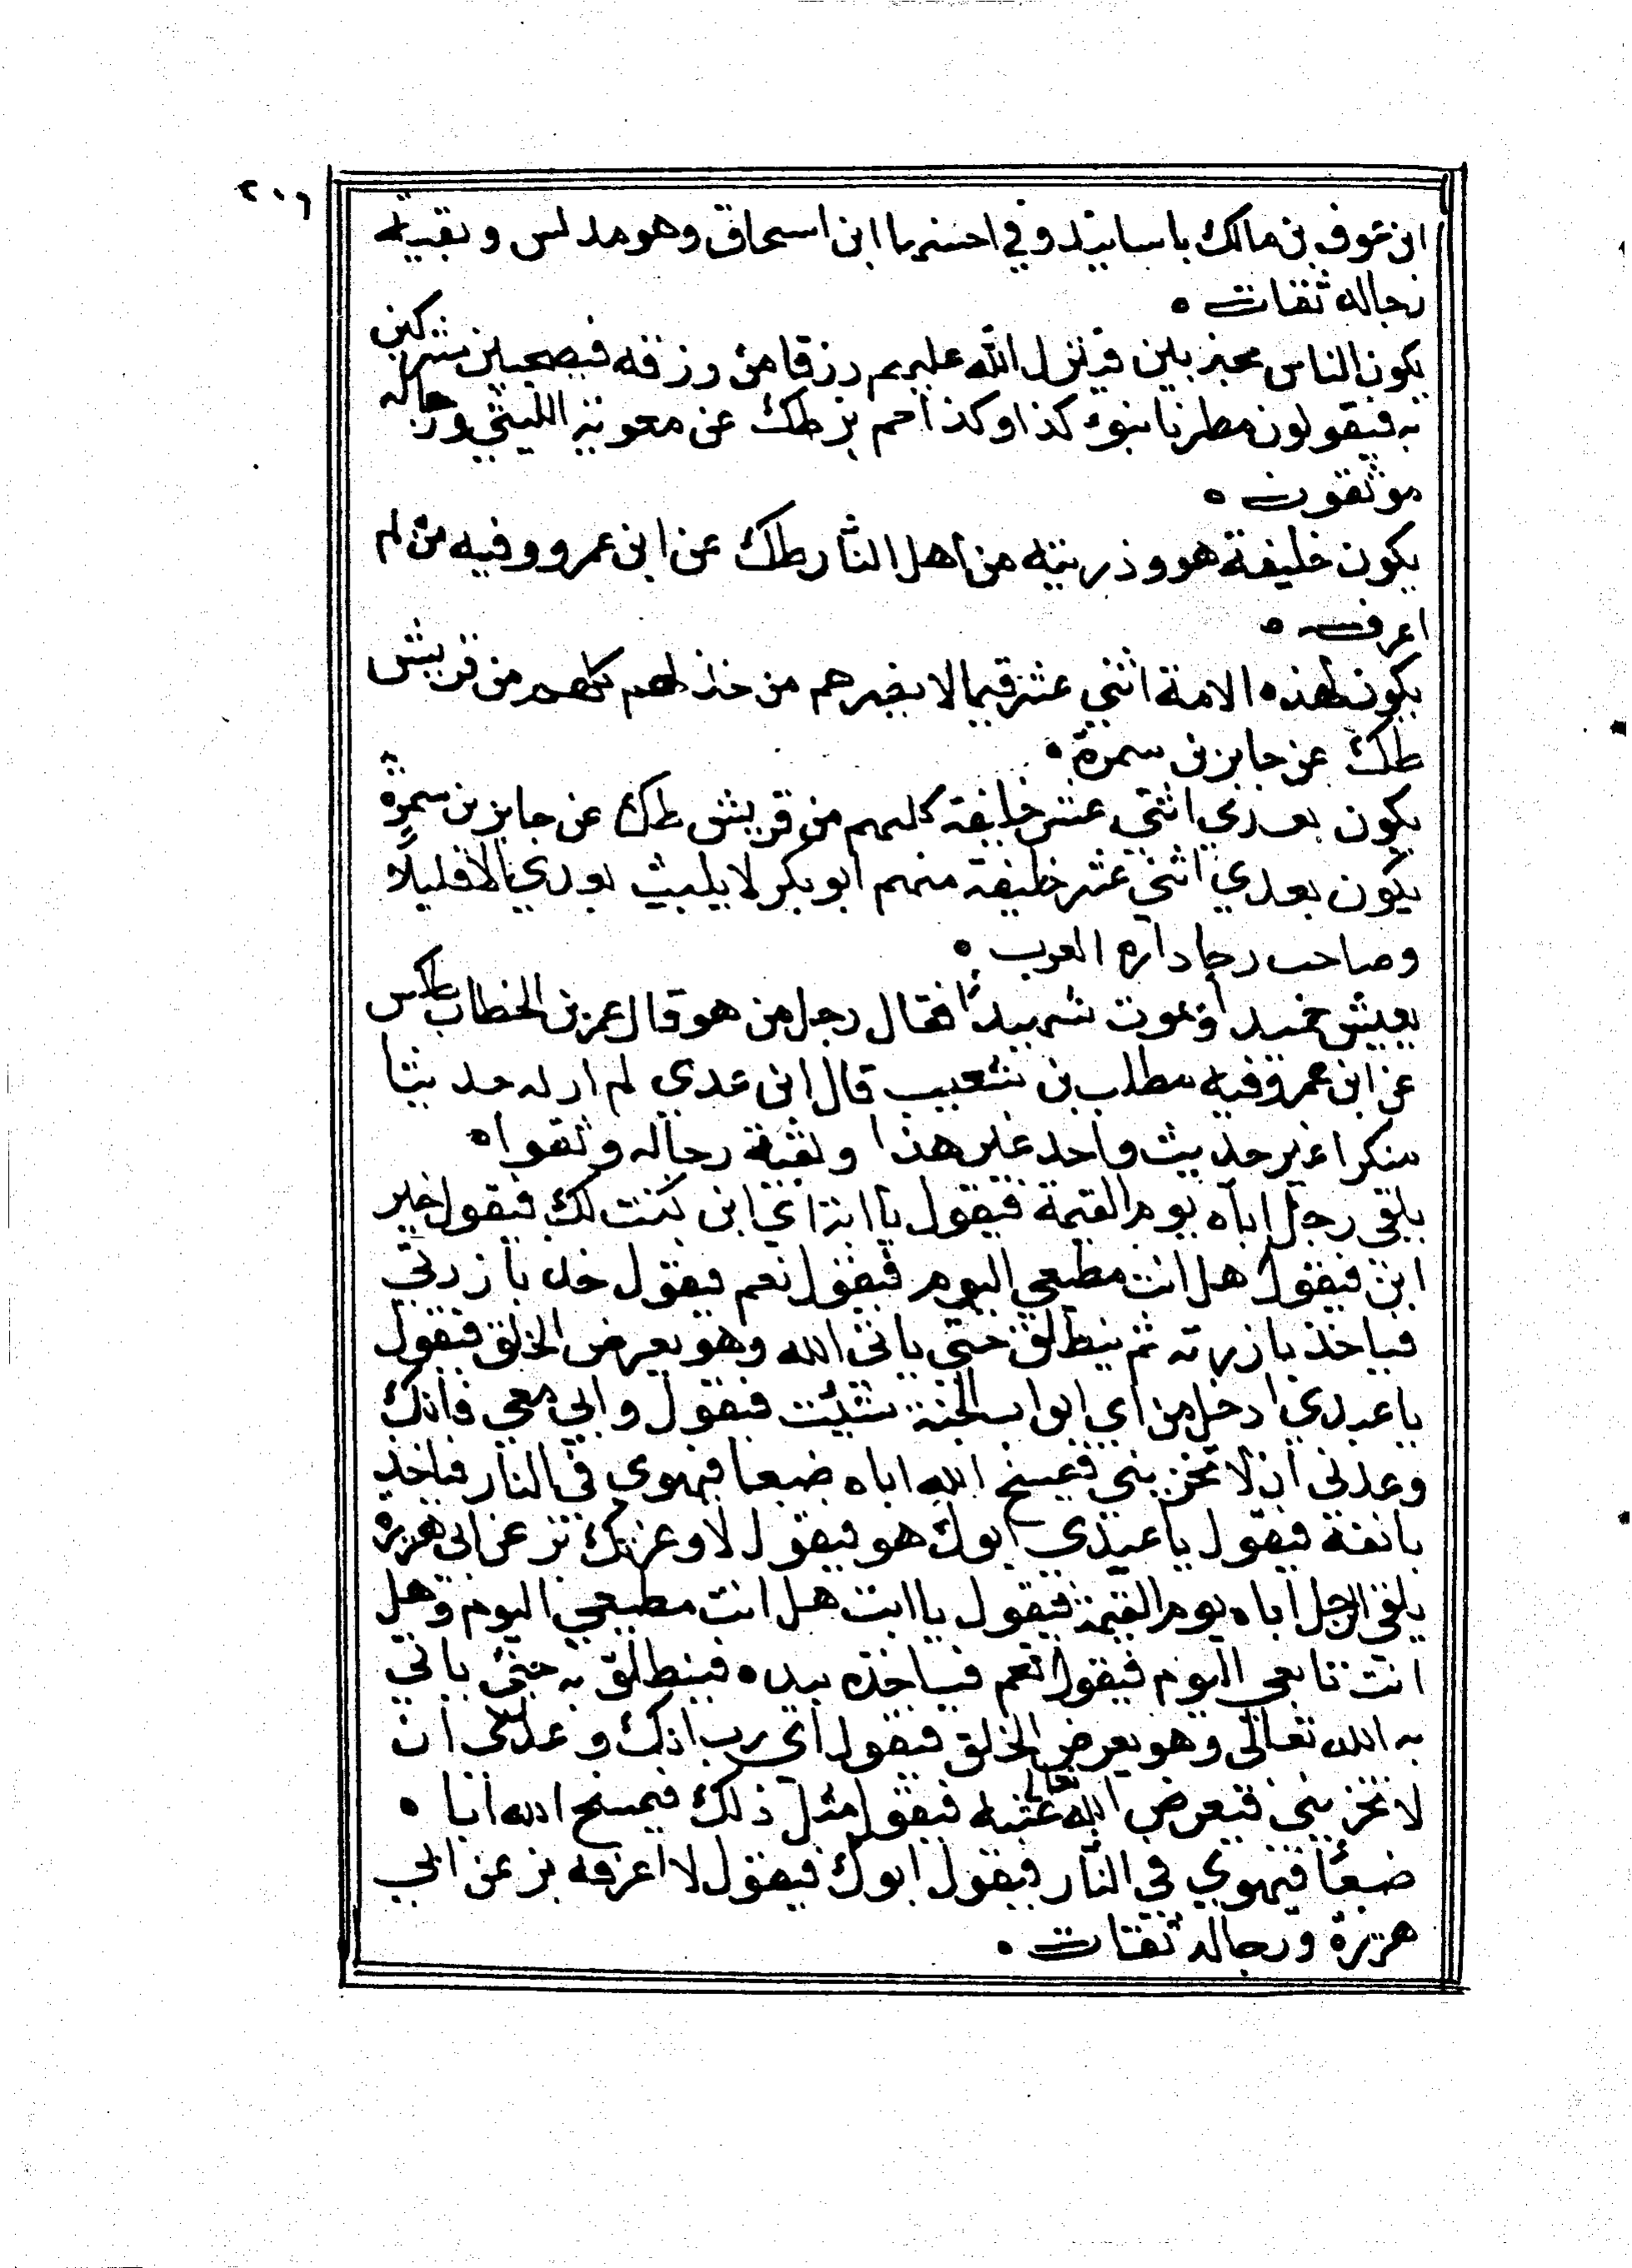 ٢٠٦
ابن عوف بن مالك باسانيد وفي احسنها ابن اسحاق وهو مدلس وبقية
رجاله ثقات ٥
يكون الناس مجدبين فينزل الله عليهم رزقا من رزقه فيصبحون مشركين
به فيقولون مطرنا بنوء كذا وكذا حم بز طك عن معوية الليثي ورجاله
موثقون ٥
يكون خليفة هو وذريته من اهل النار طك عن ابن عمرو وفيه من لم
اعرفه ٥
يكون لهذه الامة اثني عشر قيما لا يضرهم من خذلهم كلهم من قريش
طك عن جابر بن سمرة ٥
يكون بعدي اثني عشر خليفة كلهم من قريش طك عن جابر بن سمرة
يكون بعدي اثني عشر خليفة منهم ابو بكر لا يلبث بعدي الا قليلا
وصاحب رحا دارة العرب ٥
يعيش حميدا ويموت شهيدا فقال رجل من هو قال عمر بن الخطاب طكس
عن ابن عمرو وفيه مطلب بن شعيب قال ابن عدي لم ار له حديثا
منكرا غير حديث واحد غير هذا وبقية رجاله وثقوا ٥
يلقى رجل اباه يوم القيمة فيقول يا ابة اي ابن كنت لك فيقول خير
ابن فيقول هل انت مطيعي اليوم فيقول نعم فيقول خذ بازرتي
فياخذ بازرته ثم ينطلق حتى ياتي الله وهو يعرض الخلق فيقول
يا عبدي ادخل من اي ابواب الجنة شئت فيقول وابي معي فانك
وعدتني ان لا تخزيني فيمسخ الله اباه ضبعا فيهوي في النار فياخذ
بانفه فيقول يا عبدي ابوك هو فيقول لا وعزتك بز عن ابي هريرة
يلقى الرجل اباه يوم القيمة فيقول يا ابت هل انت مطيعي اليوم وهل
انت تابعي اليوم فيقول نعم فياخذه بيده فينطلق به حتى ياتي
به الله تعالى وهو يعرض الخلق فيقول اي رب انك وعدتني ان
لا تخزيني فيعرض الله تعالى عنه فيقول مثل ذلك فيمسخ الله اباه
ضبعا فيهوي في النار فيقول ابوك فيقول لا اعرفه بز عن ابي
هريرة ورجاله ثقات ٥